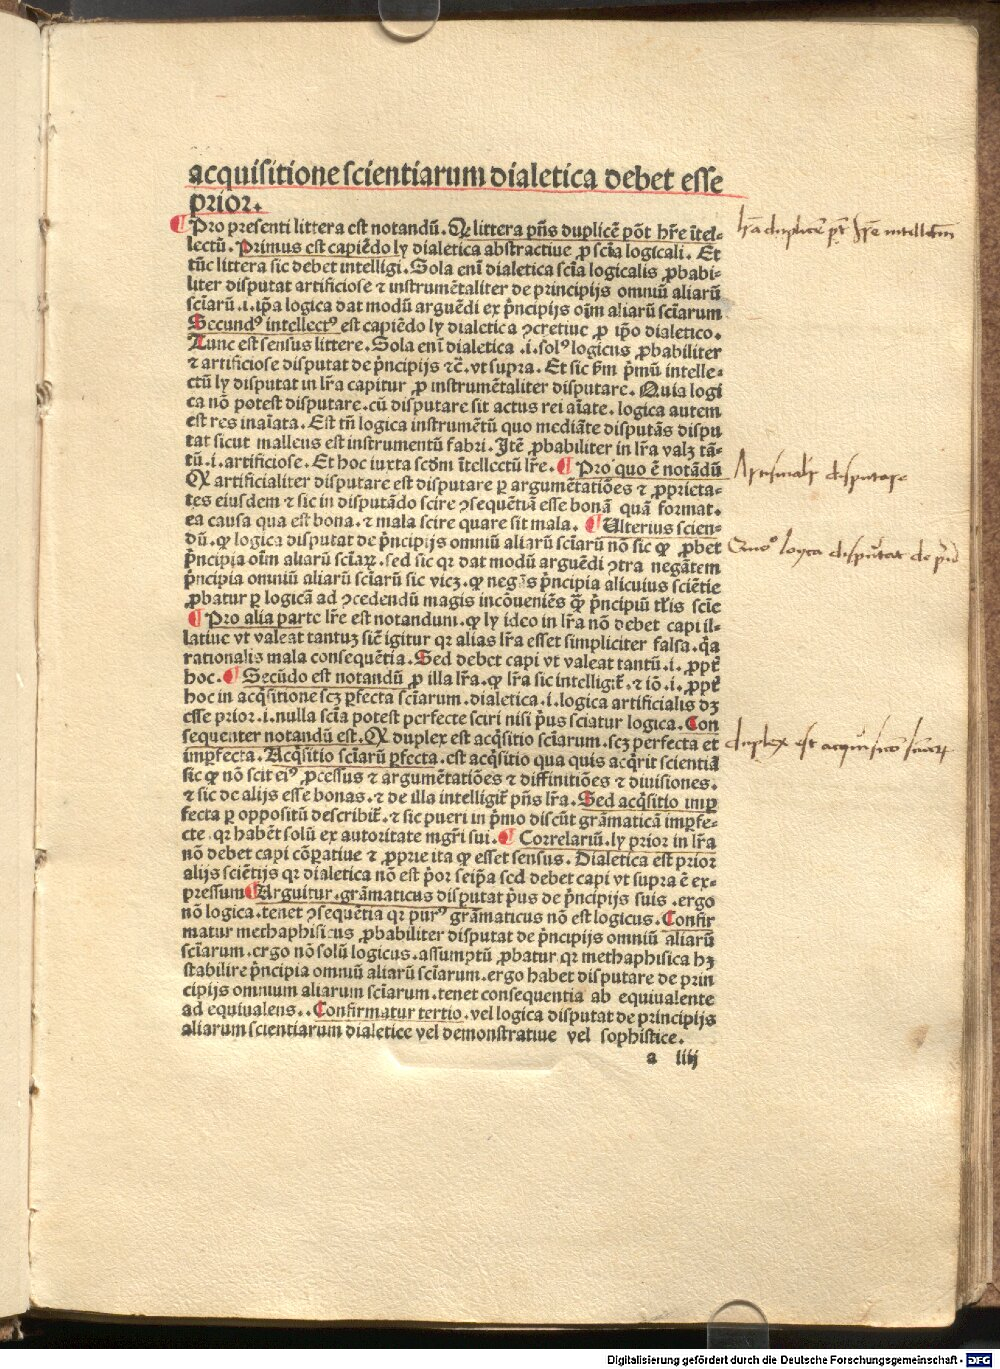 acquisitione scientiarum dialetica debet esse
prior.
¶ Pro presenti littera est notandū. Qꝫ littera pn̄s duplicē pōt hr̄e ītel-
lectū. Primus est capiēdo ly dialetica abstractiue ꝓ scīa logicali. Et
tūc littera sic debet intelligi. Sola eni dialetica scīa logicalis ꝓbabi-
liter disputat artificiose ⁊ instrumētaliter de principijs omniū aliarū
scīarū .i. ip̄a logica dat modū arguēdi ex pͥncipijs oīm aliarū scīarum
Secundꝰ intellectꝰ est capiēdo ly dialetica ꝯcretiue ꝓ ip̄o dialetico.
Tunc est sensus littere. Sola enī dialetica .i. solꝰ logicus ꝓbabiliter
⁊ artificiose disputat de pͥncipijs ⁊c̄. vt supra. Et sic sm̄ pͥmū intelle-
ctū ly disputat in lr̄a capitur ꝓ instrumētaliter disputare. Quia logi
ca nō potest disputare. cū disputare sit actus rei aīate. logica autem
est res inaīata. Est tn̄ logica instrumētū quo mediāte disputās dispu
tat sicut malleus est instrumentū fabri. Itē ꝓbabiliter in lr̄a valꝫ tā-
tū .i. artificiose. Et hoc iuxta scd̄m ītellectū lr̄e. ¶ Pro quo ē notādū
Qꝫ artificialiter disputare est disputare ꝑ argumētatiōes ⁊ ꝓprieta-
tes eiusdem ⁊ sic in disputādo scire ꝯsequētiā esse bonā quā format.
ea causa qua est bona. ⁊ mala scire quare sit mala. ¶ Ulterius scien-
dū. ꝙ logica disputat de pͥncipijs omniū aliarū scīarū nō sic ꝙ ꝓbet
pͥncipia oīm aliarū scīaꝝ. sed sic qꝛ dat modū arguēdi ꝯtra negātem
pͥncipia omniū aliarū scīarū sic vicꝫ. ꝙ negās pͥncipia alicuius sciētie
ꝓbatur ꝑ logicā ad ꝯcedendū magis incōueniēs ꝙ̄ pͥncipiū tl̄is scīe
¶ Pro alia parte lr̄e est notandum. ꝙ ly ideo in lr̄a nō debet capi il-
latiue vt valeat tantuꝫ sic̄ igitur qꝛ alias lr̄a esset simpliciter falsa. q̄a
rationalis mala consequētia. Sed debet capi vt valeat tantū .i. ꝓpt̄
hoc. ¶ Secūdo est notandū ꝓ illa lr̄a. ꝙ lr̄a sic intelligit̄. ⁊ iō .i. ꝓpt̄
hoc in acq̄sitione scꝫ ꝑfecta scīarum. dialetica .i. logica artificialis dꝫ
esse prior .i. nulla scīa potest perfecte sciri nisi pͥus sciatur logica. Con
sequenter notandū est. Qꝫ duplex est acq̄sitio scīarum. scꝫ perfecta et
imꝑfecta. Acq̄sitio scīarū ꝑfecta. est acq̄sitio qua quis acq̄rit scientiā
sic ꝙ nō scit eiꝰ ꝓcessus ⁊ argumētatiōes ⁊ diffinitiōes ⁊ diuisiones.
⁊ sic de alijs esse bonas. ⁊ de illa intelligit̄ pn̄s lr̄a. Sed acq̄sitio imꝑ
fecta ꝑ oppositū describit̄. ⁊ sic pueri in pͥmo discūt grāmaticā imꝑfe-
cte. qꝛ habēt solū ex autoritate mgr̄i sui. ¶ Correlariū. ly prior in lr̄a
nō debet capi cōꝑatiue ⁊ ꝓprie ita ꝙ esset sensus. Dialetica est prior
alijs sciētijs qꝛ dialetica nō est pͥor seip̄a sed debet capi vt supra ē ex-
pressum ¶ Arguitur. grāmaticus disputat pͥus de pͥncipijs suis .ergo
nō logica. tenet ꝯsequētia qꝛ purꝰ grāmaticus nō est logicus. Confir
matur methaphisicus ꝓbabiliter disputat de pͥncipijs omniū aliarū
scīarum. ergo nō solū logicus. assumptū ꝓbatur qꝛ methaphisica hꝫ
stabilire pͥncipia omniū aliarū scīarum. ergo habet disputare de prin
cipijs omnium aliarum scīarum. tenet consequentia ab equiualente
ad equiualens.. Confirmatur tertio. vel logica disputat de principijs
aliarum scientiarum dialetice vel demonstratiue vel sophistice.
a iiij
lr̄a duplicē pt̄ hr̄e intellectum
disputare
Quō loyca disputat de
duplex est acquisitio
Digitalisierung gefördert durch die Deutsche Forschungsgemeinschaft - DFG